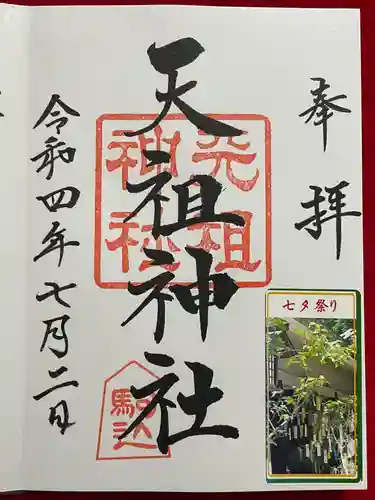 奉拝
天祖神社
天祖
神社
駒込
令和四年七月二日
七夕祭り